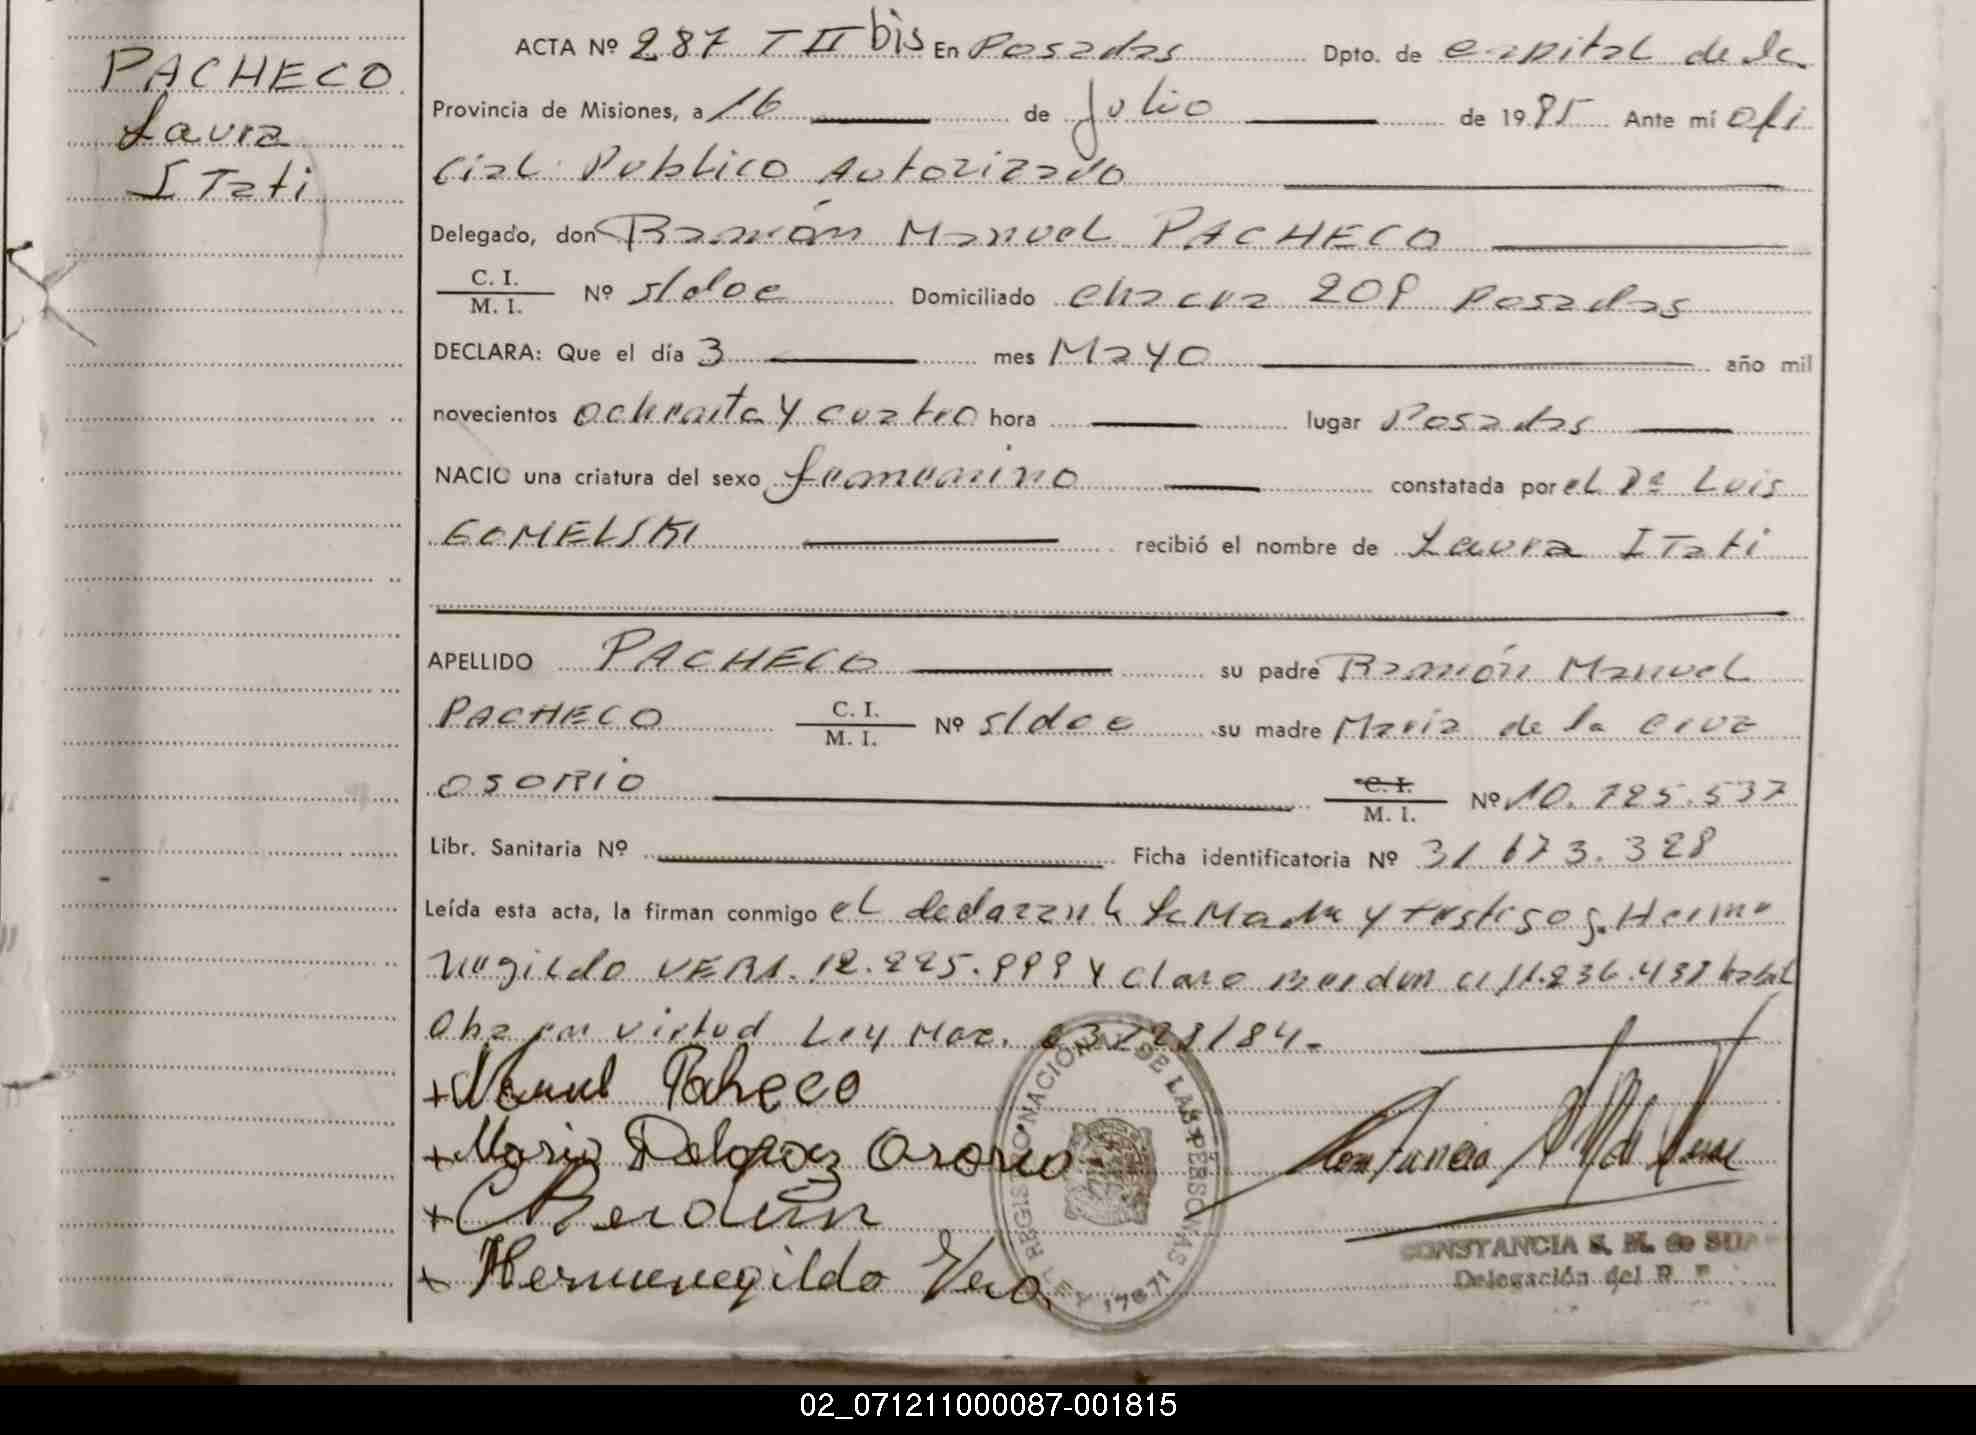 PACHECO
Laura
ITati
ACTA Nº 287 T II bis En Posadas Dpto. de capital de la
Provincia de Misiones, a 16 de Julio de 1985 Ante mí ofi
cial Publico Autorizado
Delegado, don Ramón Manuel PACHECO
C. I. / M. I. Nº s/doc Domiciliado chacra 208 Posadas
DECLARA: Que el día 3 mes Mayo año mil
novecientos ochenta y cuatro hora lugar Posadas
NACIO una criatura del sexo femenino constatada por el Dr Luis
GOMELSKI recibió el nombre de Laura ITati
APELLIDO PACHECO su padre Ramón Manuel
PACHECO C. I. / M. I. Nº s/doc su madre Maria de la cruz
OSORIO C. I. / M. I. Nº 10.785.537
Libr. Sanitaria Nº Ficha identificatoria Nº 31 673.328
Leída esta acta, la firman conmigo el declarante la Madre y testigos. Herme
negildo VERA. 12.225.999 y Claro Berdun CI 11.236.437
en virtud Ley Nac. 23128/84.
+ Manuel Pacheco
+ Maria Delacruz Osorio
+ C Berdun
+ Hermenegildo Vera
REGISTRO NACIONAL DE LAS PERSONAS
LEY 17671
CONSTANCIA S. M. de
Delegación del R. P.
02_071211000087-001815